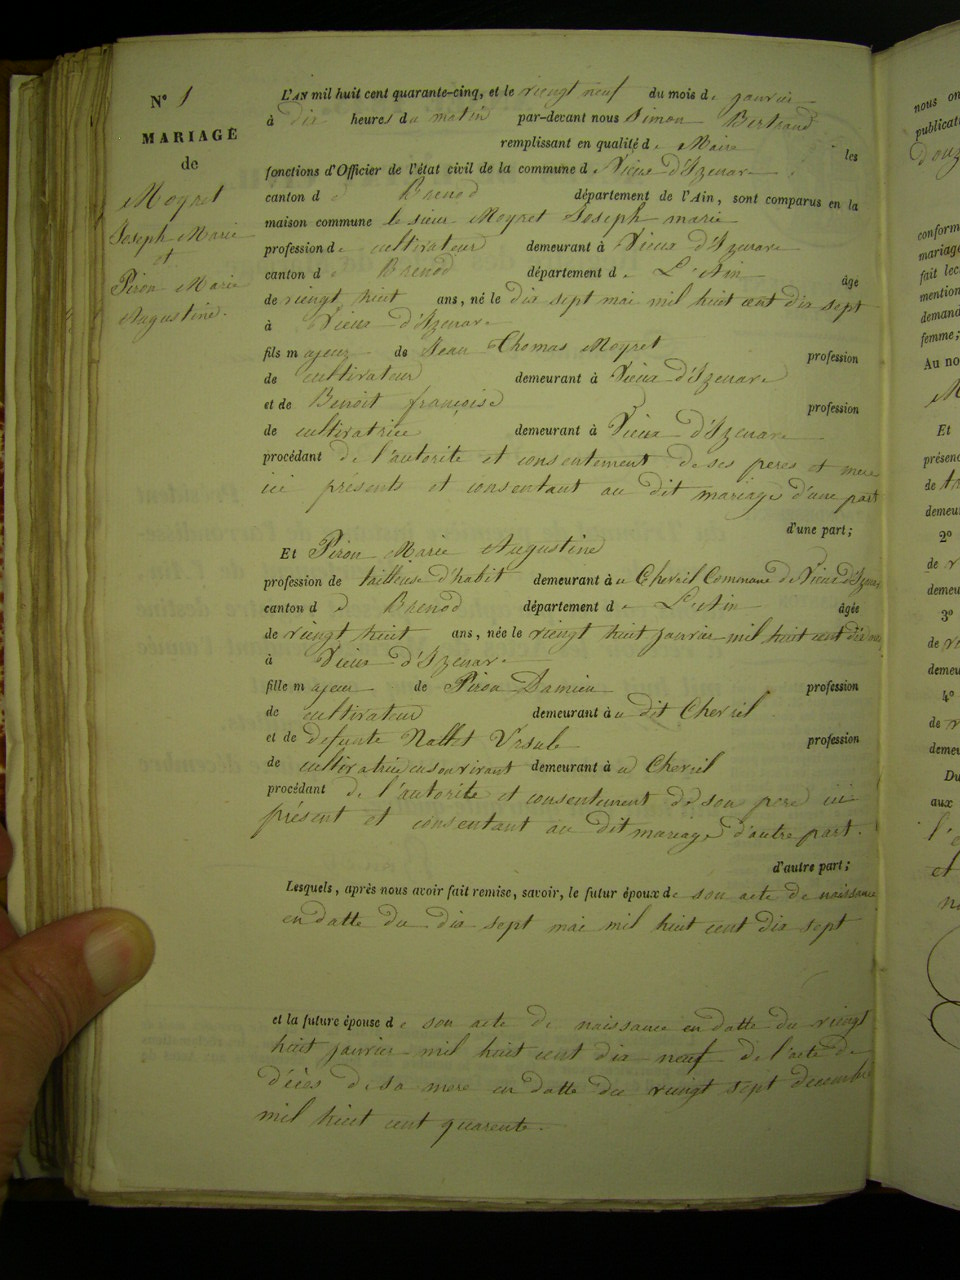 N° 1
MARIAGE
de
Moyret
Joseph Marie
et
Piron Marie
Augustine.
L'AN mil huit cent quarante-cinq, et le viengt neuf du mois de janvier
à dix heures du matin par-devant nous Simon Bertrand
remplissant en qualité de Maire les
fonctions d'Officier de l'état civil de la commune d Vieux d'Izenave
canton d e Brenod département de l'Ain, sont comparus en la
maison commune le sieur Moyret Joseph marie
profession de cultivateur demeurant à Vieux d'Izenave
canton d e Brenod département d e L'Ain âgé
de viengt huit ans, né le dix sept mai mil huit cent dix sept
à Vieux d'Izenave
fils majeur de Jean Thomas Moyret profession
de cultivateur demeurant à Vieux d'Izenave
et de Benoit françoise profession
de cultivatrice demeurant à Vieux d'Izenave
procédant de l'autorité et consentement de ses peres et mere
ici présents et consentant au dit mariage d'une part
d'une part;
Et Piron Marie Augustine
profession de tailleuse d'habit demeurant à u Chevril Commune de Vieux d'Izenave
canton d e Brenod département d e L'Ain âgée
de viengt huit ans, née le viengt huit janvier mil huit cent dix neuf
à Vieux d'Izenave
fille majeur de Piron Damien profession
de cultivateur demeurant à u dit Chevril
et de defunte Nallet Ursule profession
de cultivatrice en son vivant demeurant à u Chevril
procédant de l'autorité et consentement de son pere ici
présent et consentant au dit mariage d'autre part.
d'autre part;
Lesquels, après nous avoir fait remise, savoir, le futur époux de son acte de naissance
en datte du dix sept mai mil huit cent dix sept
et la future épouse de son acte de naissance en datte du viengt
huit janvier mil huit cent dix neuf de l'acte de
décès de sa mere en datte du viengt sept decembre
mil huit cent quarente.
nous
publicat
douz
conform
mariage
fait lec
mention
demand
femme;
Au no
Et
présenc
de
demeur
2°
de
demeu
3°
de
demeu
4°
de
demeu
Du
aux
et